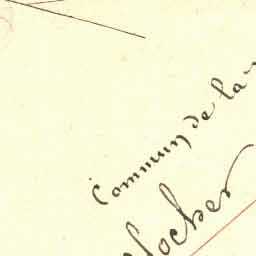 Commun de la
locher